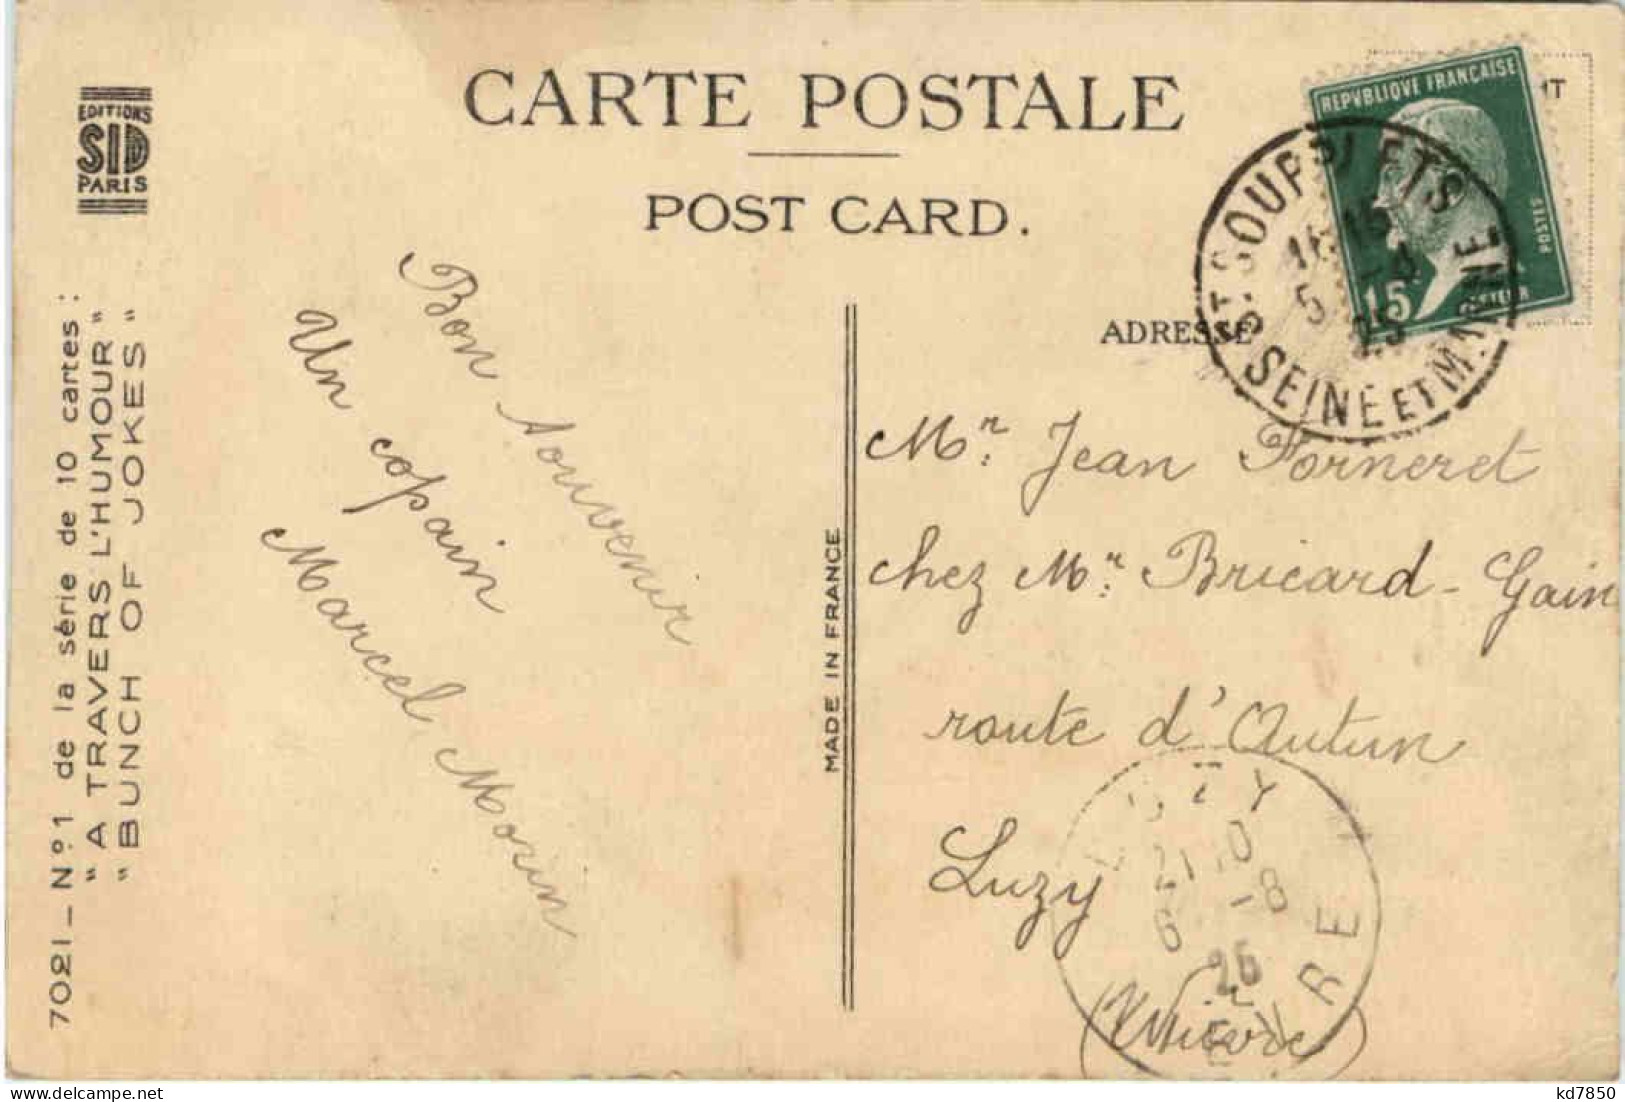 CARTE POSTALE
POST CARD.
EDITIONS
SID
PARIS
7021 - N°1 de la série de 10 cartes :
"A TRAVERS L'HUMOUR"
"BUNCH OF JOKES"
Bon souvenir
Un copain
Marcel Morin
MADE IN FRANCE
REPVBLIQVE FRANÇAISE
POSTES
15
ST. SOUPPLETS
SEINE ET MARNE
ADRESSE
Mr. Jean Forneret
chez Mr. Bricard-Gain
route d'Autun
Luzy
(Nièvre)
kd7850